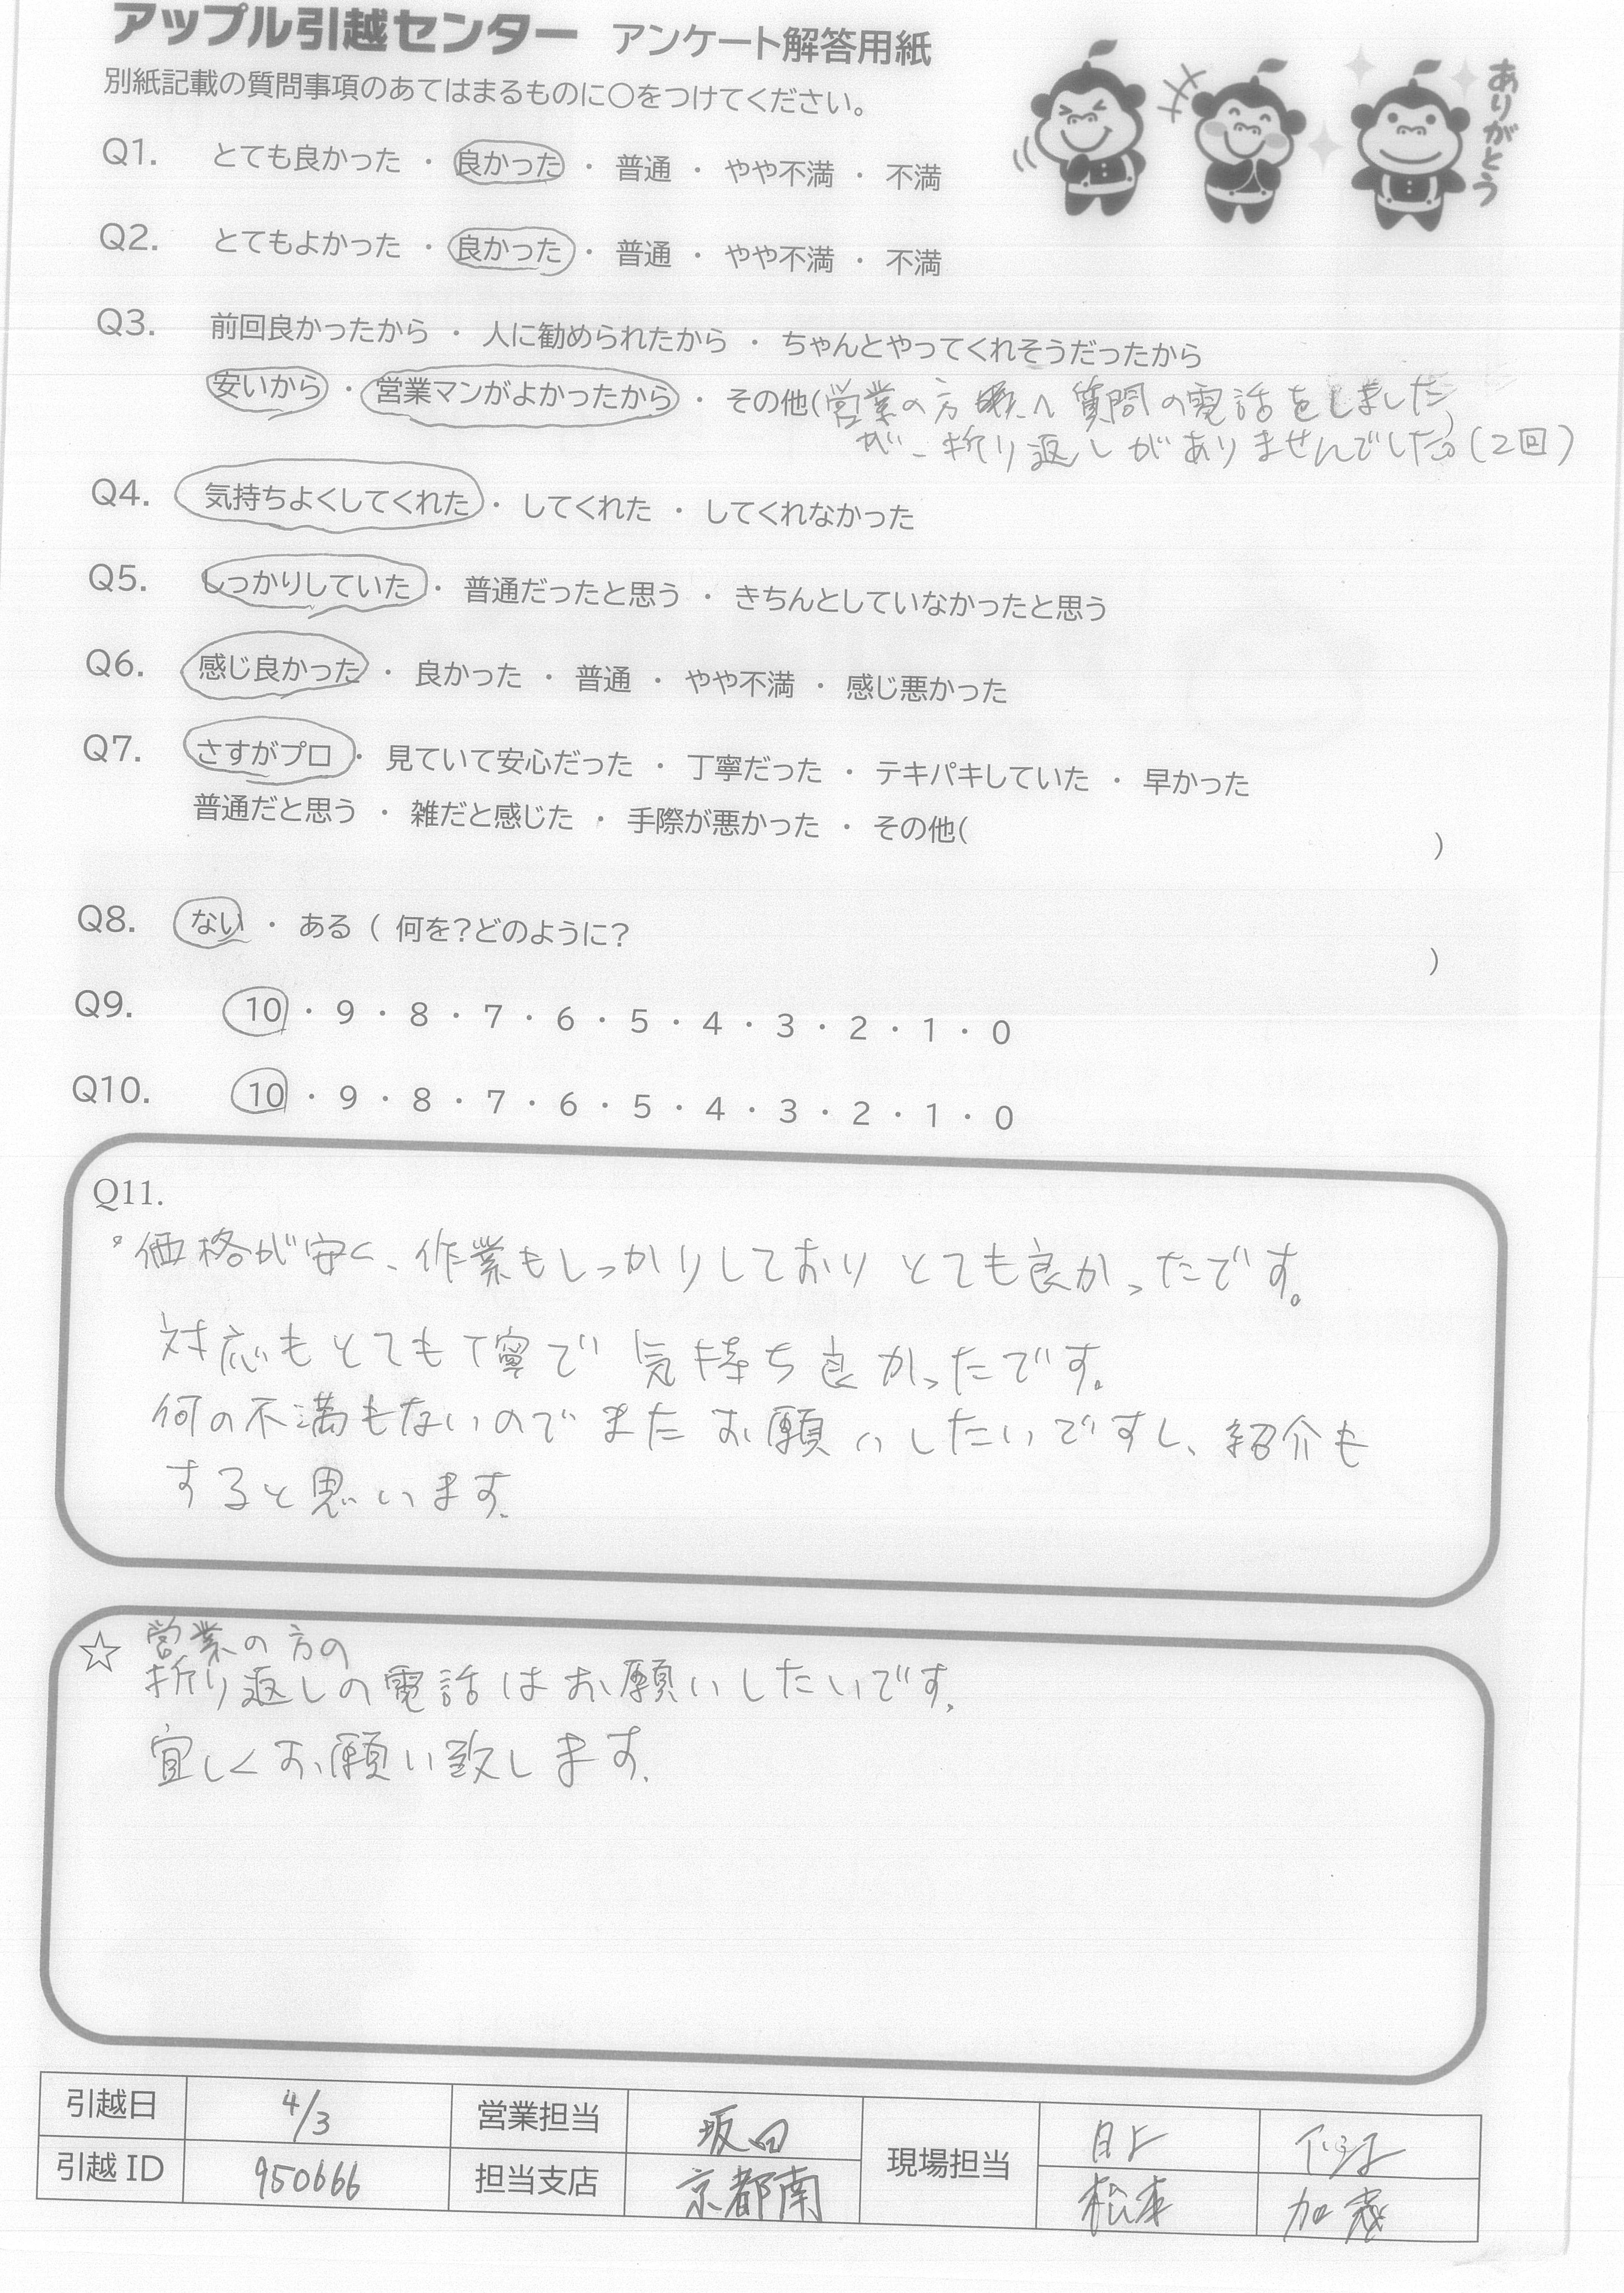 アップル引越センター アンケート解答用紙
別紙記載の質問事項のあてはまるものに○をつけてください。
ありがとう
Q1. とても良かった ・ 良かった ・ 普通 ・ やや不満 ・ 不満
Q2. とてもよかった ・ 良かった ・ 普通 ・ やや不満 ・ 不満
Q3. 前回良かったから ・ 人に勧められたから ・ ちゃんとやってくれそうだったから
安いから ・ 営業マンがよかったから ・ その他(営業の方へ質問の電話をしました)
が、折り返しがありませんでした。(2回)
Q4. 気持ちよくしてくれた ・ してくれた ・ してくれなかった
Q5. しっかりしていた ・ 普通だったと思う ・ きちんとしていなかったと思う
Q6. 感じ良かった ・ 良かった ・ 普通 ・ やや不満 ・ 感じ悪かった
Q7. さすがプロ ・ 見ていて安心だった ・ 丁寧だった ・ テキパキしていた ・ 早かった
普通だと思う ・ 雑だと感じた ・ 手際が悪かった ・ その他( )
Q8. ない ・ ある ( 何を?どのように? )
Q9. 10 ・ 9 ・ 8 ・ 7 ・ 6 ・ 5 ・ 4 ・ 3 ・ 2 ・ 1 ・ 0
Q10. 10 ・ 9 ・ 8 ・ 7 ・ 6 ・ 5 ・ 4 ・ 3 ・ 2 ・ 1 ・ 0
Q11.
・価格が安く、作業もしっかりしており とても良かったです。
対応もとても丁寧で 気持ち良かったです。
何の不満もないのでまたお願いしたいですし、紹介も
すると思います。
☆ 営業の方の
折り返しの電話はお願いしたいです。
宜しくお願い致します。
引越日 4/3 営業担当 坂口 現場担当
引越ID 950666 担当支店 京都南 松本 加藤